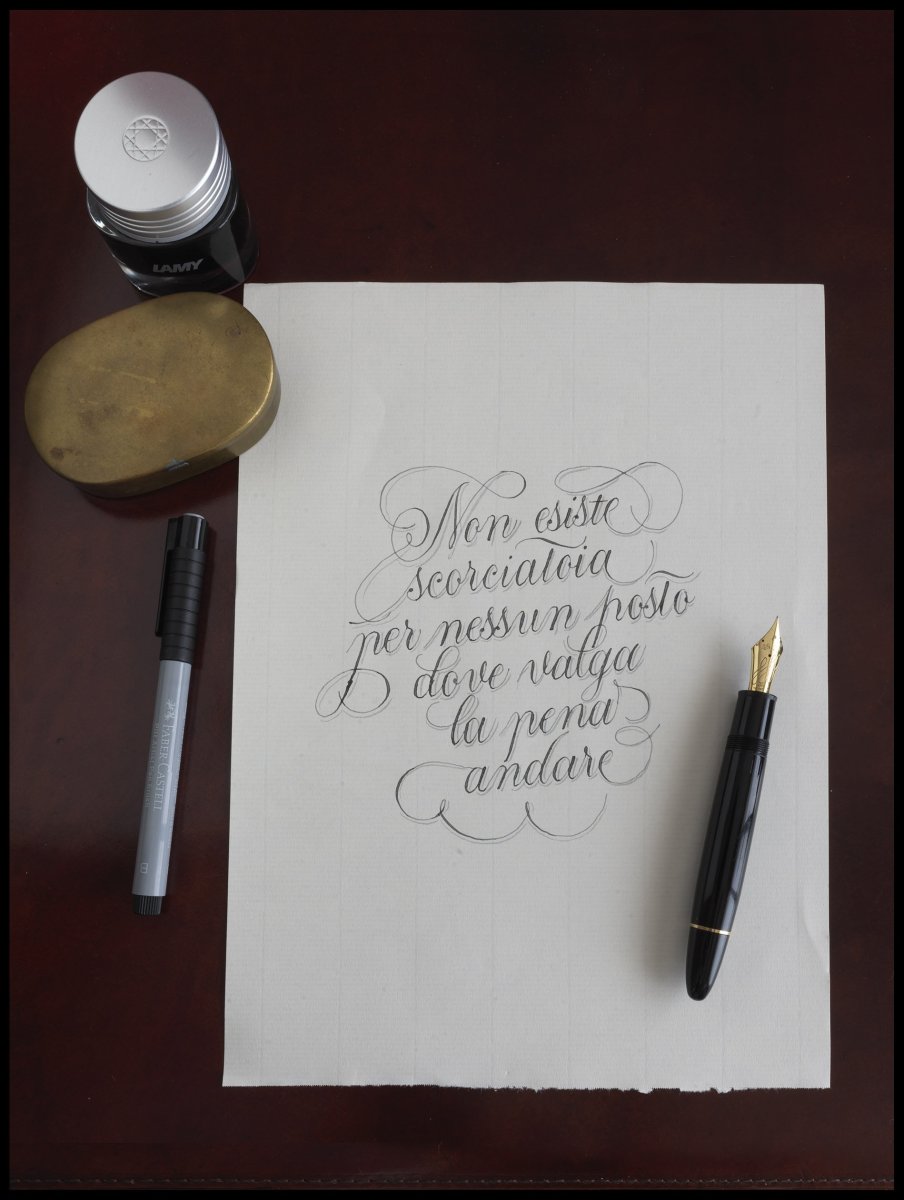 LAMY
Non esiste
scorciatoia
per nessun posto
dove valga
la pena
andare
FABER-CASTELL
B